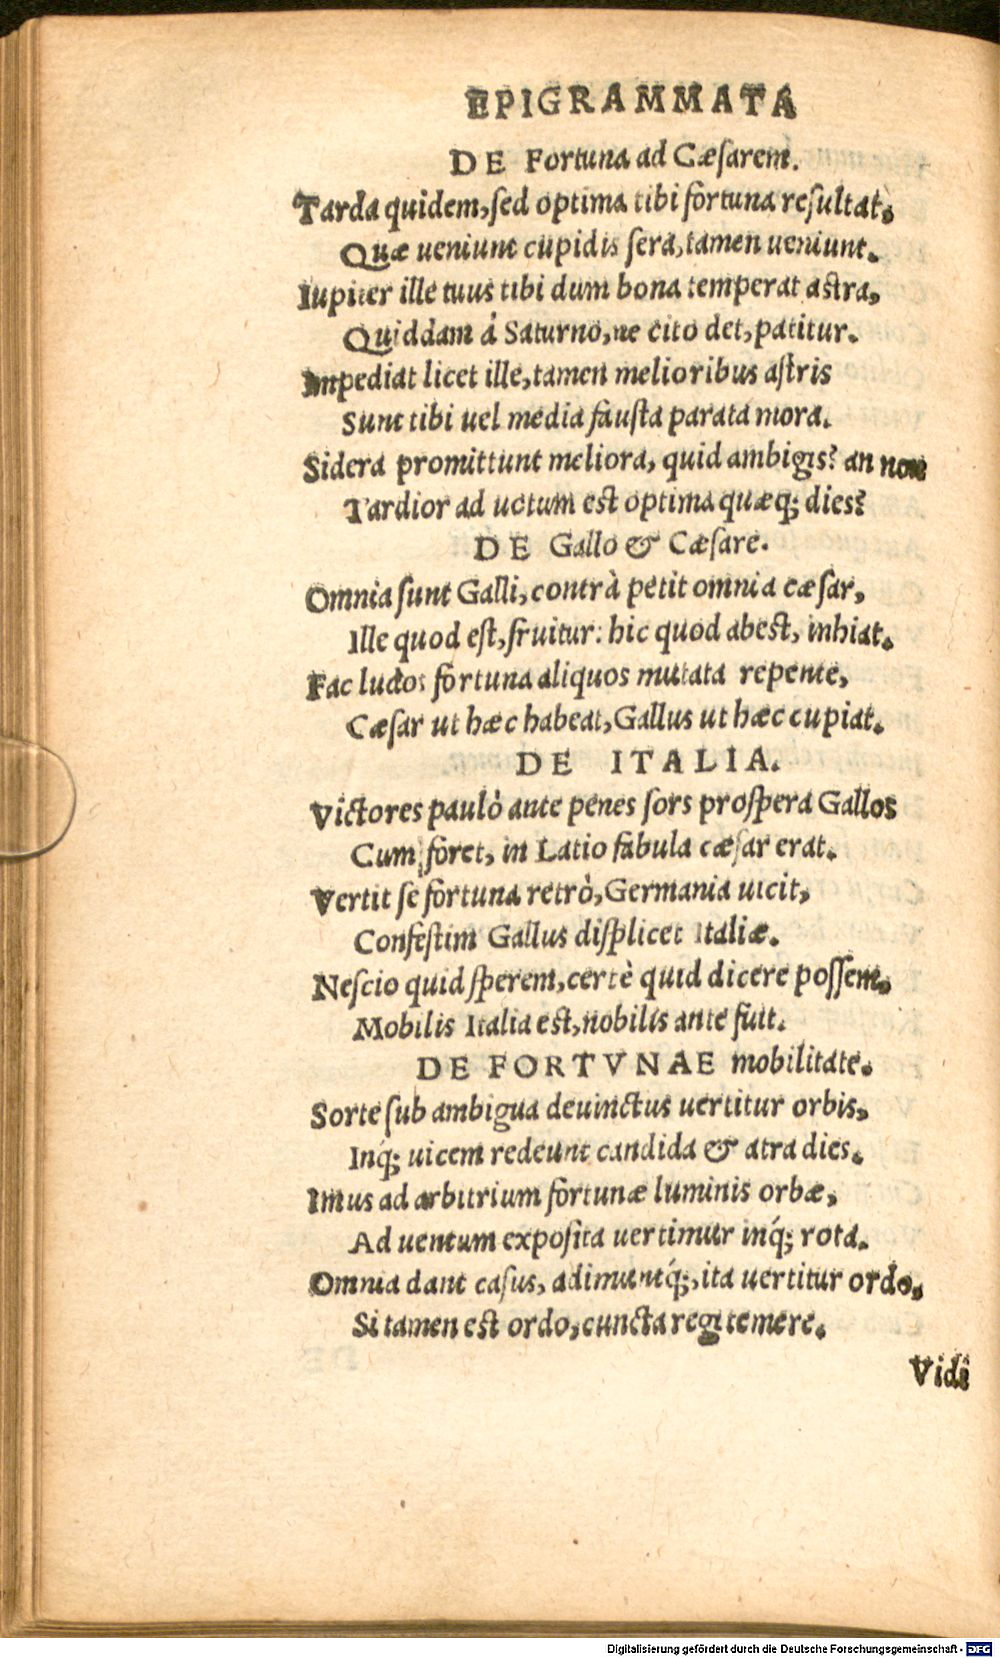 EPIGRAMMATA
DE Fortuna ad Cæſarem.
Tarda quidem, ſed optima tibi fortuna reſultat,
Quæ ueniunt cupidis ſera, tamen ueniunt.
Iupiter ille tuus tibi dum bona temperat aſtra,
Quiddam à Saturno, ne cito det, patitur.
Impediat licet ille, tamen melioribus aſtris
Sunt tibi uel media fauſta parata mora.
Sidera promittunt meliora, quid ambigis? an non
Tardior ad uotum eſt optima quæq; dies?
DE Gallo & Cæſare.
Omnia ſunt Galli, contrà petit omnia cæſar,
Ille quod eſt, fruitur: hic quod abeſt, inhiat.
Fac ludos fortuna aliquos mutata repente,
Cæſar ut hæc habeat, Gallus ut hæc cupiat.
DE ITALIA.
Victores paulò ante penes ſors proſpera Gallos
Cum foret, in Latio fabula cæſar erat.
Vertit ſe fortuna retrò, Germania uicit,
Confeſtim Gallus diſplicet Italiæ.
Neſcio quid ſperem, certè quid dicere poſſem,
Mobilis Italia eſt, nobilis ante fuit.
DE FORTVNAE mobilitate.
Sorte ſub ambigua deuinctus uertitur orbis,
Inq́; uicem redeunt candida & atra dies.
Imus ad arbitrium fortunæ luminis orbæ,
Ad uentum expoſita uertimur inq́; rota.
Omnia dant caſus, adimuntq́;, ita uertitur ordo,
Si tamen eſt ordo, cuncta regi temere.
Vidi
Digitalisierung gefördert durch die Deutsche Forschungsgemeinschaft - DFG